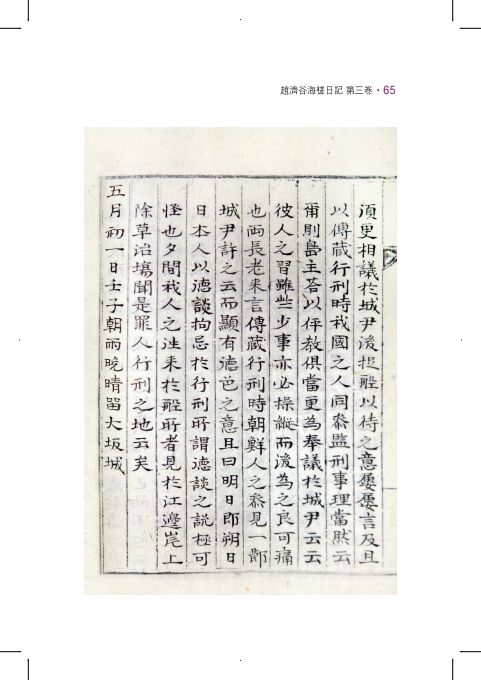 趙濟谷海槎日記 第三卷 · 65
須更相議於城尹後捉船以待之意屢屢言及且
以傳藏行刑時我國之人同叅監刑事理當然云
爾則島主答以伻教俱當更為奉議於城尹云云
彼人之習雖些少事亦必操縱而後為之良可痛
也兩長老来言傳藏行刑時朝鮮人之叅見一欵
城尹許之云而顯有德色之意且曰明日即朔日
日本人以德談拘忌於行刑所謂德談之說極可
怪也夕間我人之往来於船所者見於江邊崑上
除草治塲聞是罪人行刑之地云矣
五月初一日壬子朝雨晩晴留大坂城